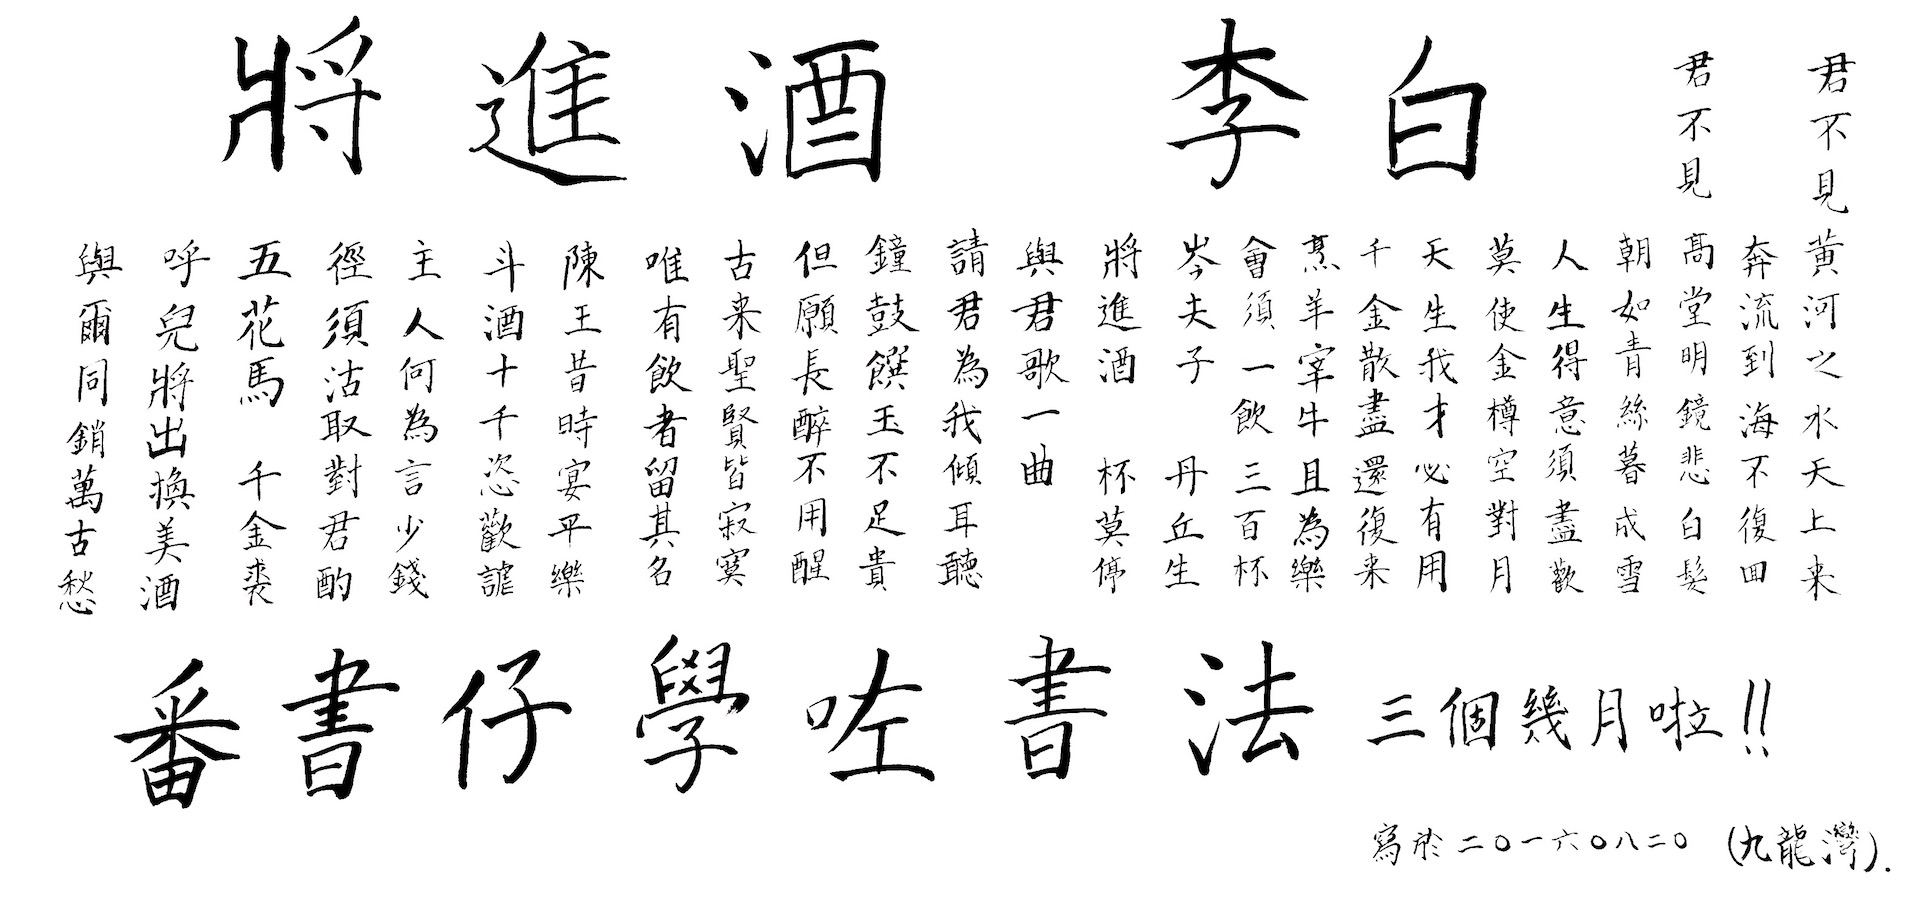 將進酒 李白
君不見
黃河之水天上来
奔流到海不復回
君不見
髙堂明鏡悲白髮
朝如青絲暮成雪
人生得意須盡歡
莫使金樽空對月
天生我才必有用
千金散盡還復来
烹羊宰牛且為樂
會須一飲三百杯
岑夫子 丹丘生
將進酒 杯莫停
與君歌一曲
請君為我傾耳聽
鐘鼓饌玉不足貴
但願長醉不用醒
古来聖賢皆寂寞
唯有飲者留其名
陳王昔時宴平樂
斗酒十千恣歡謔
主人何為言少錢
徑須沽取對君酌
五花馬 千金裘
呼兒將出換美酒
與爾同銷萬古愁
番書仔學咗書法三個幾月啦!!
寫於二〇一六〇八二〇 (九龍灣).